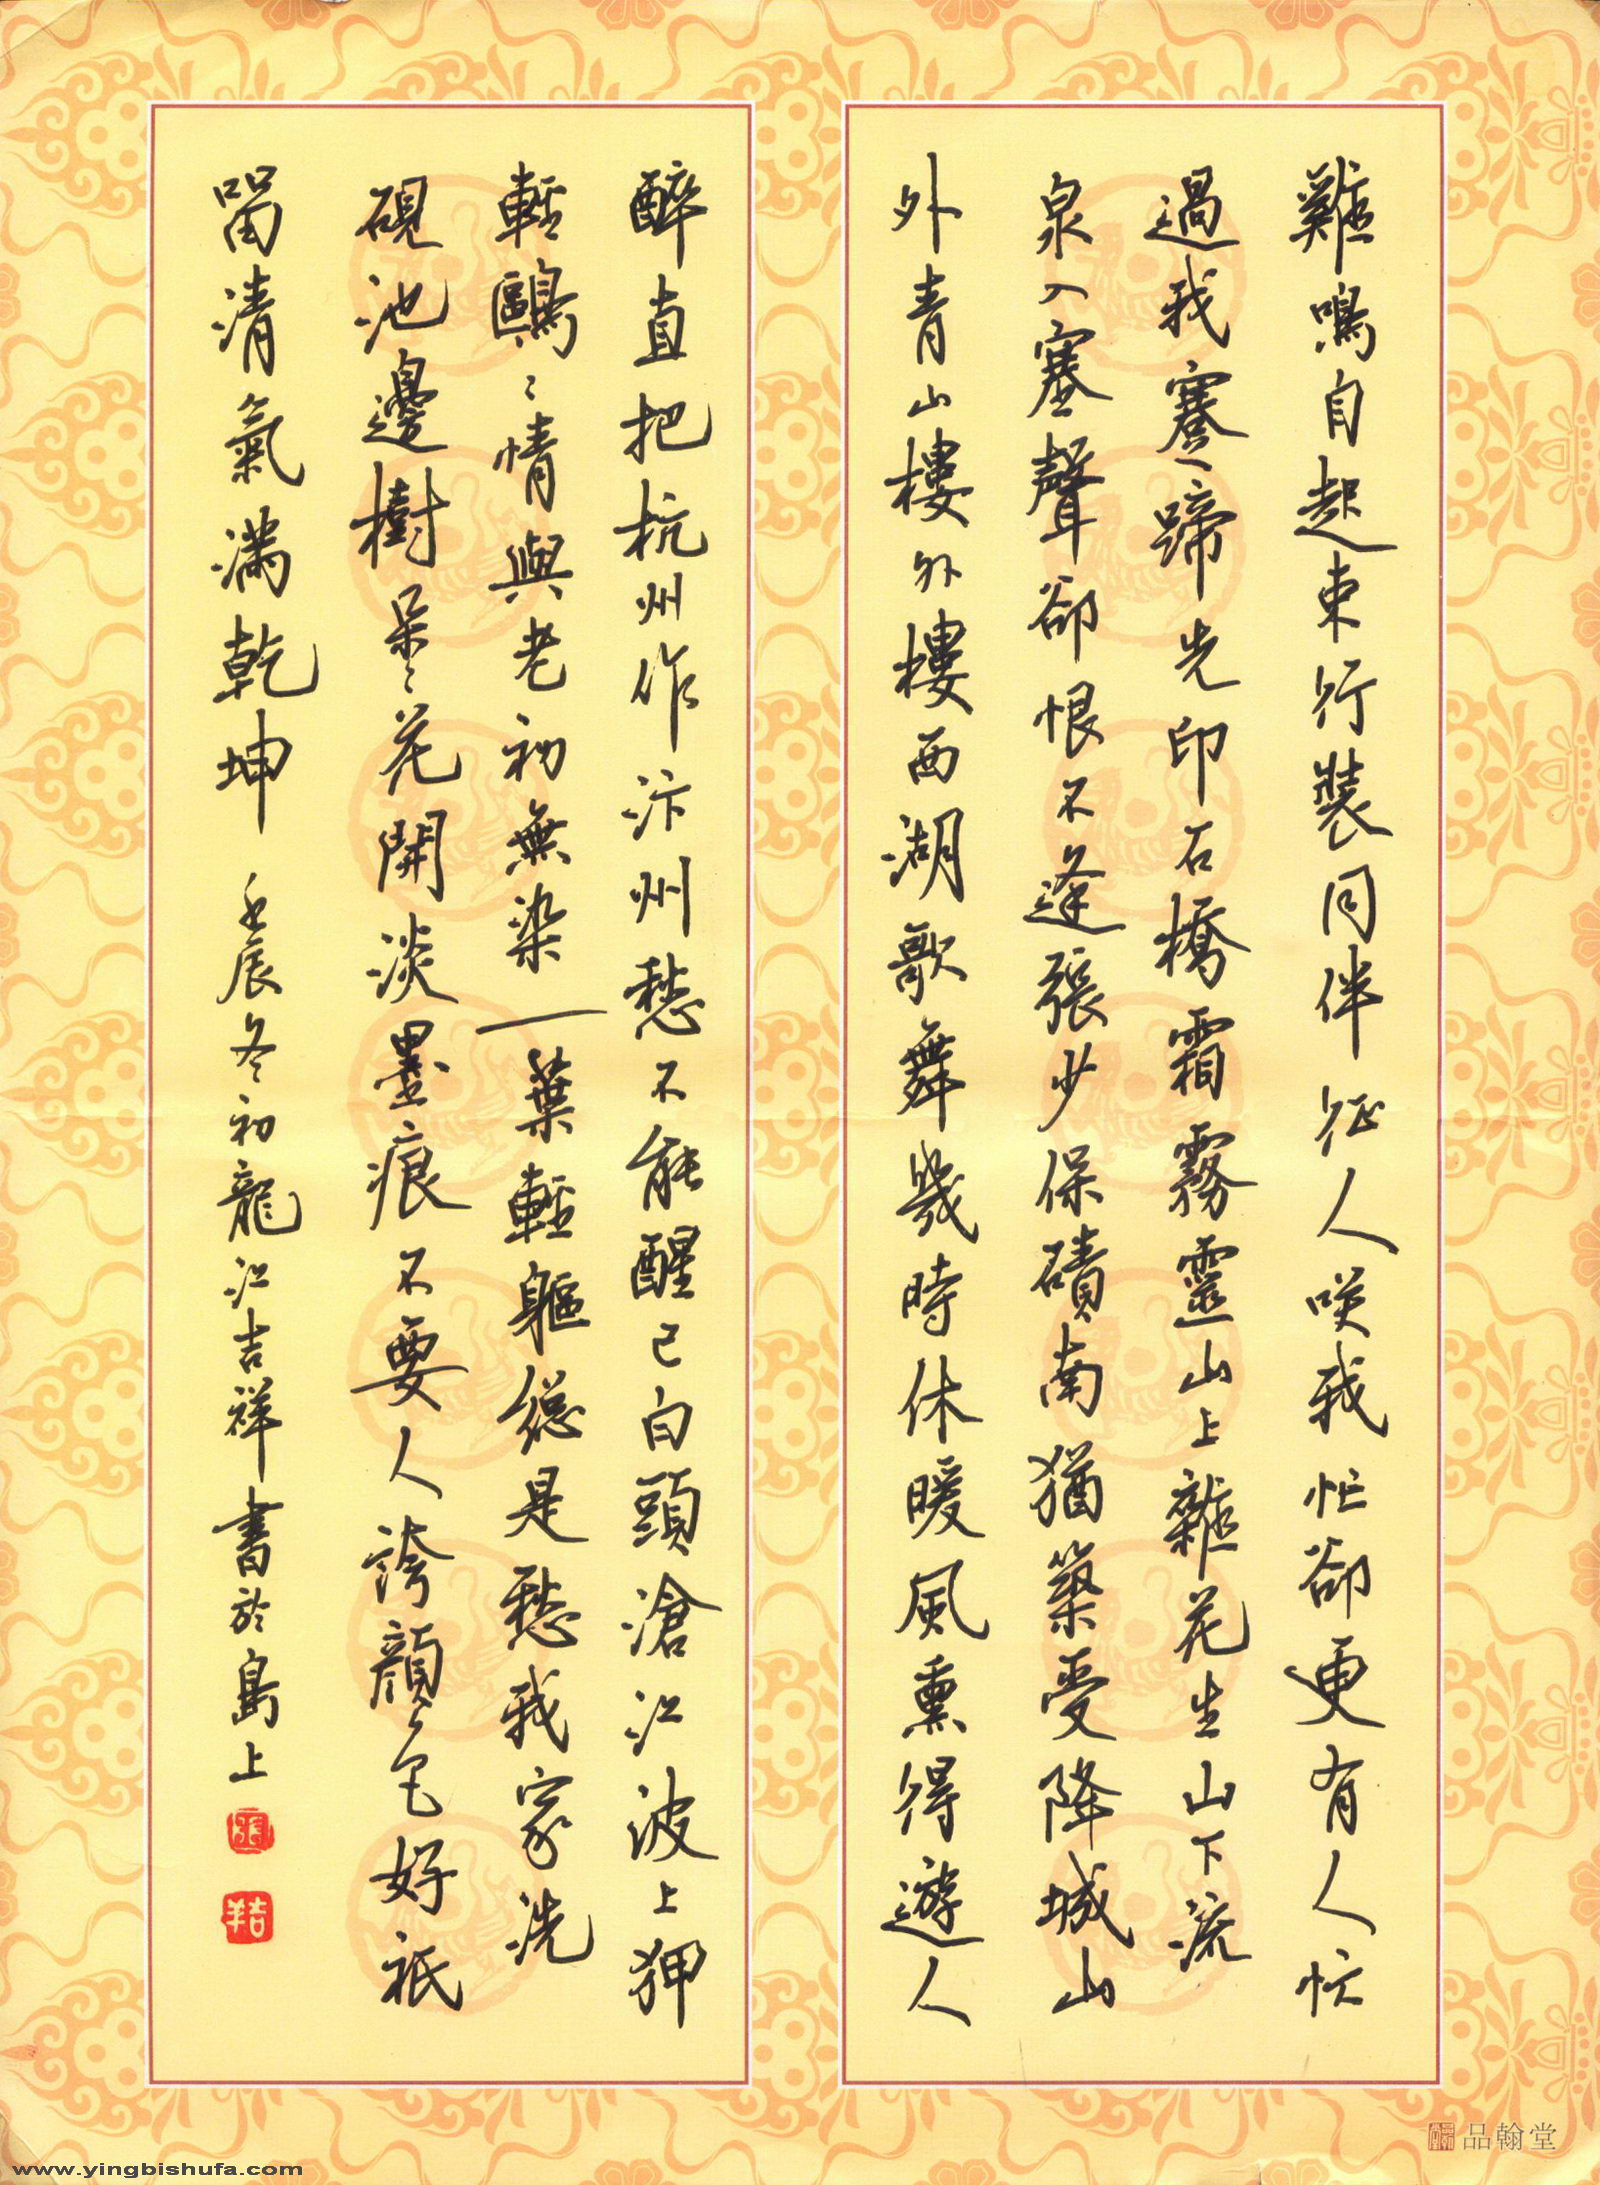 難鳴自起束行裝同伴征人咲我忙卻更有人忙
過我蹇蹄先印石橋霜霧靈山上雜花生山下流
泉入塞聲卻恨不逢張少保磧南猶築受降城山
外青山樓外樓西湖歌舞幾時休暖風熏得遊人
醉直把杭州作汴州愁不能醒已白頭滄江波上狎
輕鷗鷗情與老初無染一葉輕軀總是愁我家洗
硯池邊樹朵朵花開淡墨痕不要人誇顏色好衹
留清氣滿乾坤 壬辰冬初龍江吉祥書於島上
品翰堂
www.yingbishufa.com